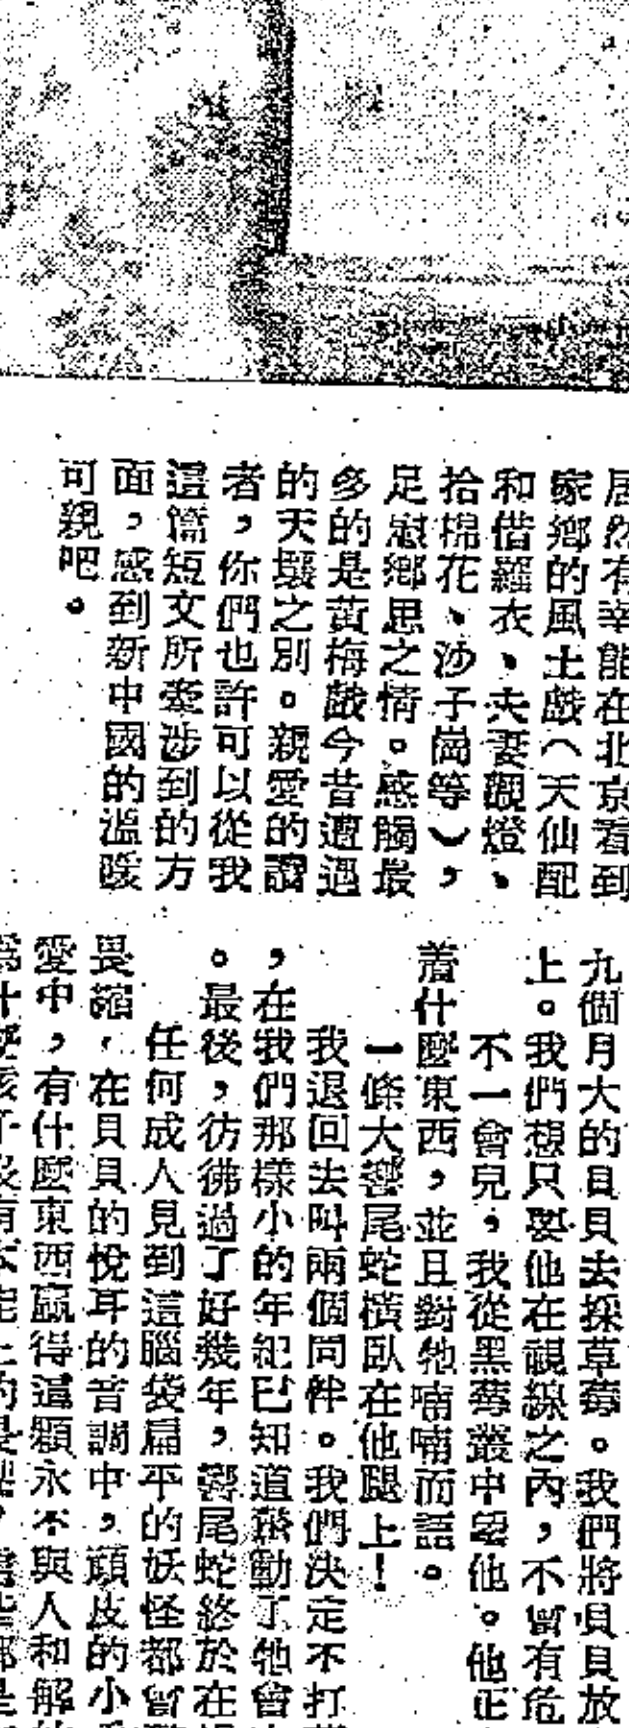 居然有幸能在北京看到
家鄉的風土戲（天仙配
和借羅衣、夫妻觀燈、
拾棉花、沙子崗等），
足慰鄉思之情。感觸最
多的是黃梅戲今昔遭遇
的天壤之別。親愛的讀
者，你們也許可以從我
這篇短文所牽涉到的方
面，感到新中國的溫暖
可親吧。
九個月大的貝貝去採草莓。我們將貝貝放
上。我們想只要他在視線之內，不會有危
不一會兒，我從黑莓叢中望他。他正
着什麼東西，並且對牠喃喃而語。
一條大響尾蛇橫臥在他腿上！
我退回去叫兩個同伴。我們決定不打
，在我們那樣小的年紀已知道激動了牠會
。最後，彷彿過了好幾年，響尾蛇終於在
任何成人見到這腦袋扁平的妖怪都會
畏縮，在貝貝的悅耳的音調中，頑皮的小
愛中，有什麼東西贏得這顆永不與人和解
爲什麼孩子